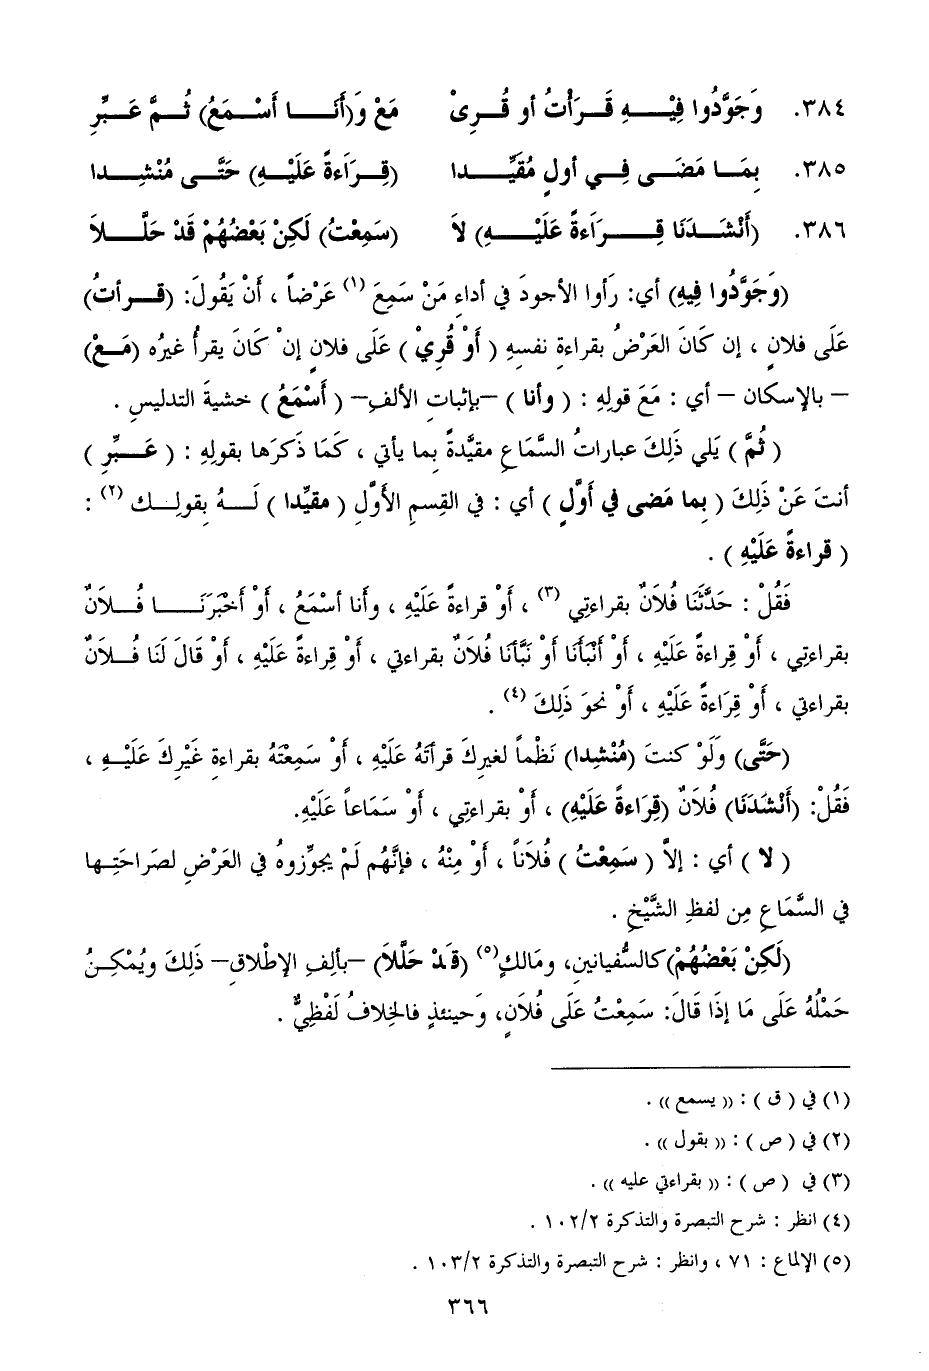 ٣٨٤. وَجَوَّدُوا فِيْـــهِ قَــرَأْتُ أو قُــرِئْ مَعْ وَ(أَنَـــا أَسْــمَعُ) ثُــمَّ عَــبِّرِ
٣٨٥. بِمَــا مَضَــى فِــي أولٍ مُقَيِّــــدا (قِــرَاءَةً عَلَيْــهِ) حَتَّــى مُنْشِــدا
٣٨٦. (أَنْشَــدَنَا قِــــرَاءَةً عَلَيْــــهِ) لاَ (سَمِعْتُ) لَكِنْ بَعْضُهُمْ قَدْ حَلَّــلاَ
(وَجَوَّدُوا فِيهِ) أي: رَأوا الأجودَ في أداءِ مَنْ سَمِعَ (١) عَرْضاً ، أَنْ يَقُولَ: (قـرأتُ)
عَلَى فلانٍ ، إن كَانَ العَرْضُ بقراءةِ نفسهِ ( أَوْ قُرِيْ ) عَلَى فلانٍ إنْ كَانَ يقرأُ غيرُه (مَـعْ)
– بالإسكان – أي : مَعَ قولِهِ : ( وأنا ) –بإثباتِ الألفِ– ( أَسْمَعُ ) خشيةَ التدليسِ .
( ثُمَّ ) يَلي ذَلِكَ عباراتُ السَّمَاعِ مقيَّدةً بما يأتي ، كَمَا ذكرَها بقولِهِ : ( عَـبِّرِ )
أنتَ عَنْ ذَلِكَ ( بِما مَضى في أوَّلٍ ) أي : في القِسمِ الأوَّلِ ( مقيِّدا ) لَــهُ بقولِــك (٢) :
( قراءةً عَلَيْهِ ) .
فَقُلْ : حَدَّثَنَا فُلاَنٌ بقراءتِي (٣) ، أَوْ قراءةً عَلَيْهِ ، وأَنا أسْمَعُ ، أَوْ أَخْبَرَنَـــا فُــلاَنٌ
بقراءتِي ، أَوْ قِراءةً عَلَيْهِ ، أَوْ أَنْبَأَنَا أَوْ نَبَّأنَا فُلاَنٌ بقراءتي ، أَوْ قِراءةً عَلَيْهِ ، أَوْ قَالَ لَنَا فُــلاَنٌ
بقراءتي ، أَوْ قِرَاءَةً عَلَيْهِ ، أَوْ نحوَ ذَلِكَ (٤) .
(حَتَّى) وَلَوْ كنتَ (مُنْشِدا) نَظْماً لغيرِكَ قرأتَهُ عَلَيْهِ ، أَوْ سَمِعْتَهُ بقراءةِ غَيْرِكَ عَلَيْـهِ ،
فَقُلْ: (أَنْشَدَنَا) فُلاَنٌ (قِرَاءَةً عَلَيْهِ) ، أَوْ بقراءتِي ، أَوْ سَمَاعاً عَلَيْهِ.
( لا ) أي : إلاَّ ( سَمِعْتُ ) فُلاَناً ، أَوْ مِنْهُ ، فإنَّهُم لَمْ يجوِّزوهُ في العَرْضِ لصرَاحَتِـها
في السَّمَاعِ مِن لفظِ الشَّيْخِ .
(لَكِنْ بَعْضُهُمْ) كالسُّفيانينِ، ومَالكٍ(٥) (قَدْ حَلَّلاَ) –بألفِ الإطْلاقِ– ذَلِكَ ويُمْكِـنُ
حَمْلُهُ عَلَى مَا إذَا قَالَ: سَمِعْتُ عَلَى فُلاَنٍ، وَحينئذٍ فالخِلافُ لَفْظِيٌّ .
(١) في ( ق ) : (( يسمع )) .
(٢) في ( ص ) : (( بقول )) .
(٣) في ( ص ) : (( بقراءتي عليه )) .
(٤) انظر : شرح التبصرة والتذكرة ١٠٢/٢ .
(٥) الإلماع : ٧١ ، وانظر : شرح التبصرة والتذكرة ١٠٣/٢ .
٣٦٦